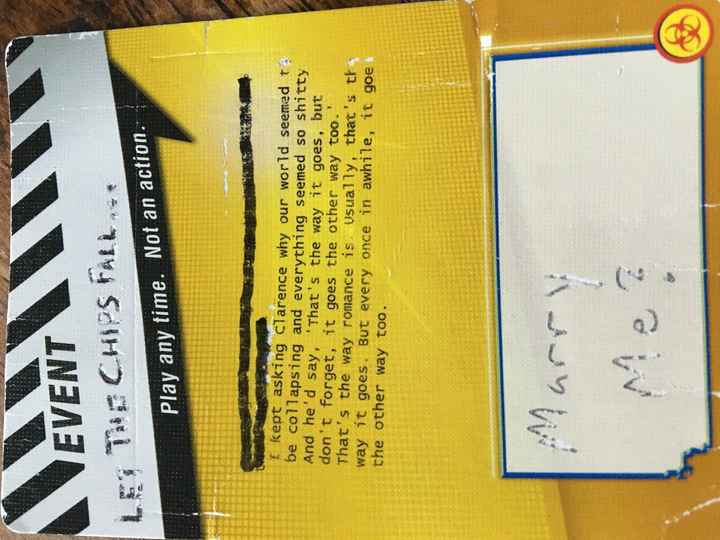 EVENT
LET THE CHIPS FALL...
Play any time. Not an action.
I kept asking Clarence why our world seemed t
be collapsing and everything seemed so shitty
And he'd say, 'That's the way it goes, but
don't forget, it goes the other way too.'
That's the way romance is. Usually, that's th
way it goes. But every once in awhile, it goe
the other way too.
Marry
Me?